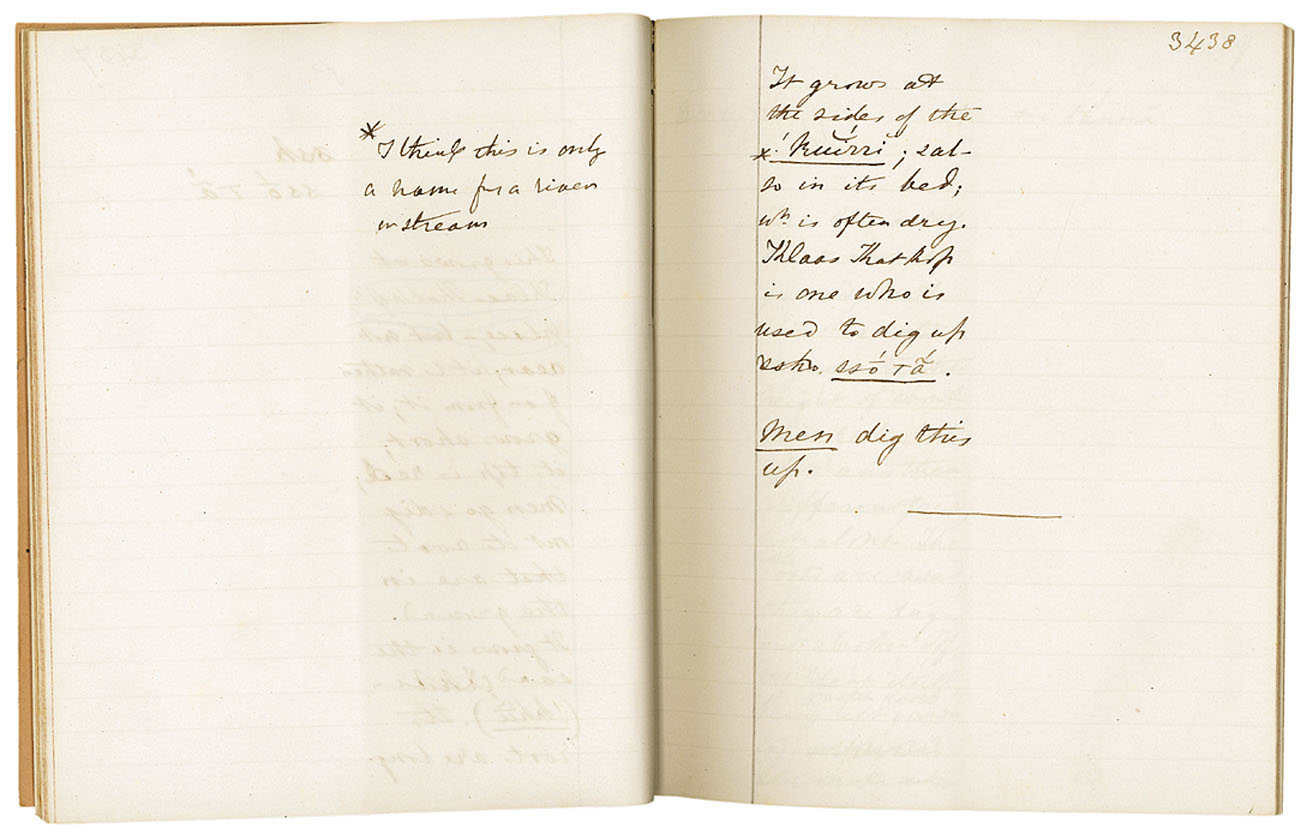 *
I think this is only
a name for a river
or stream
3438
It grows at
the sides of the
! k̆uĭrrĭ ; & al-
so in its bed;
wh is often dry.
Klaas Katkop
is one who is
used to dig up
ssho, ssó τắ.
Men dig this
up.